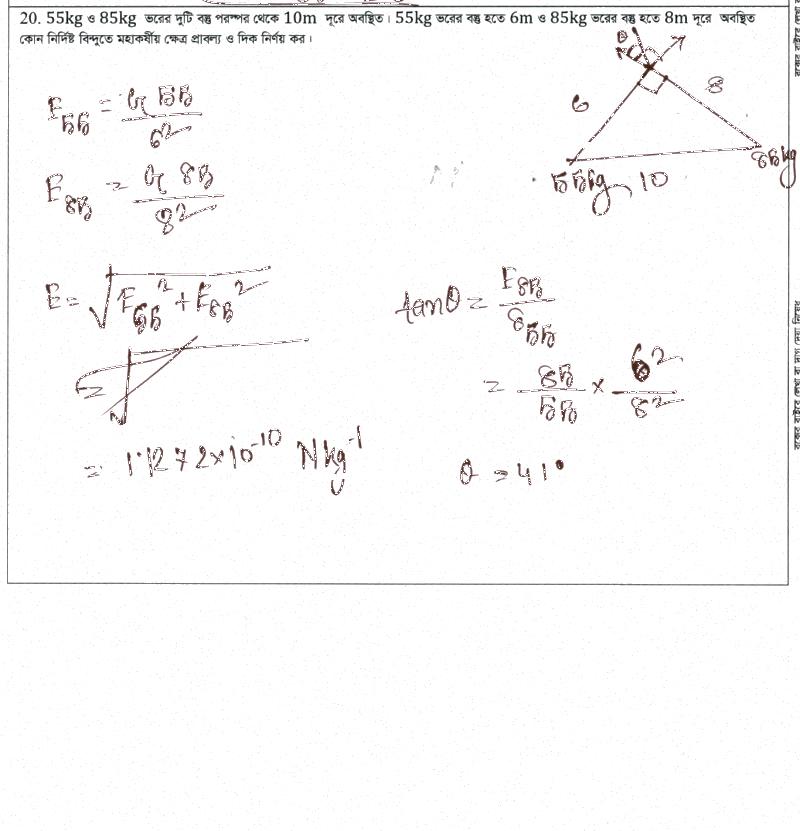 20. 55kg ও 85kg ভরের দুটি বস্তু পরস্পর থেকে 10m দূরে অবস্থিত। 55kg ভরের বস্তু হতে 6m ও 85kg ভরের বস্তু হতে 8m দূরে অবস্থিত
কোন নির্দিষ্ট বিন্দুতে মহাকর্ষীয় ক্ষেত্র প্রাবল্য ও দিক নির্ণয় কর।
6
8
55kg
10
85kg
E₅₅ = G 55 / 6²
E₈₅ = G 85 / 8²
E = √(E₅₅² + E₈₅²)
= 1.1272×10⁻¹⁰ N kg⁻¹
tanθ = E₈₅ / E₅₅
= 85/55 × 6²/8²
θ = 41°